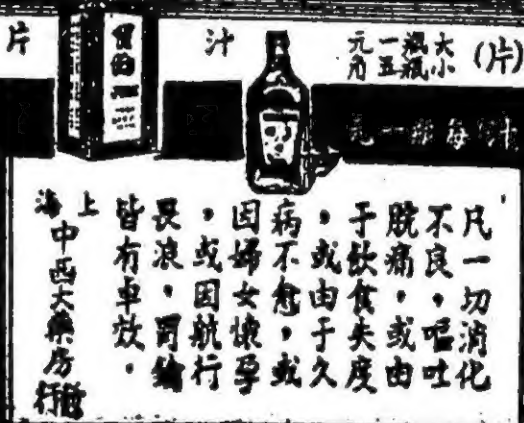 (片)
大瓶一元
小瓶五角
每瓶一元
汁
片
凡一切消化
不良，嘔吐
脘痛，或由
于飲食失度
，或由于久
病不愈，或
因婦女懷孕
，或因航行
畏浪，
皆有卓效。
上海
中西大藥房
發行